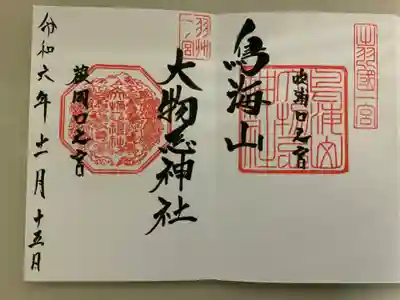 出羽國一宮
鳥海山
吹浦口之宮
羽州一ノ宮
大物忌神社
蕨岡口之宮
令和六年十一月十五日